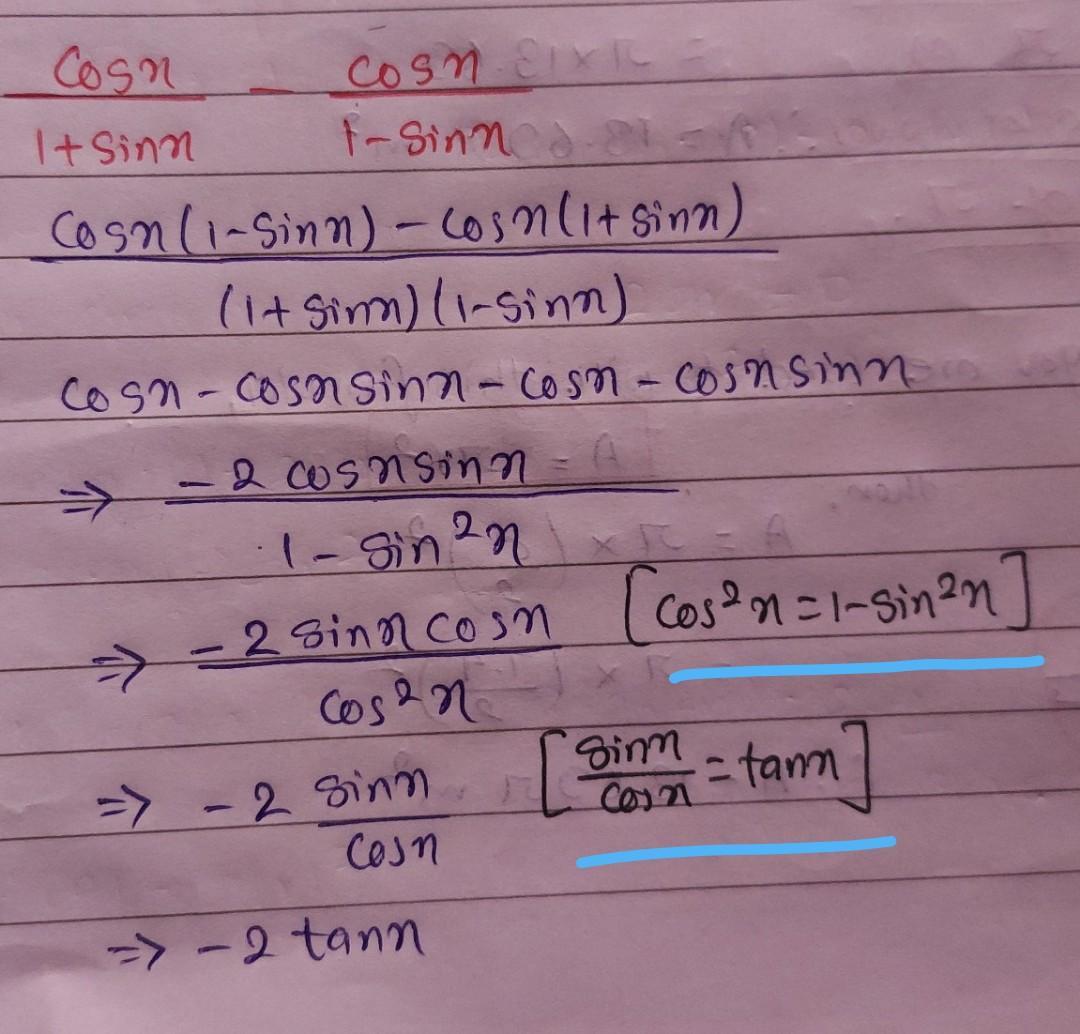 cosx/1+sinx - cosx/1-sinx
cosx(1-sinx) - cosx(1+sinx)
(1+sinx)(1-sinx)
cosx - cosx sinx - cosx - cosx sinx
⇒ -2 cosx sinx
1 - sin²x
⇒ -2 sinx cosx/cos²x [cos²x = 1-sin²x]
⇒ -2 sinx/cosx [sinx/cosx = tanx]
⇒ -2 tanx